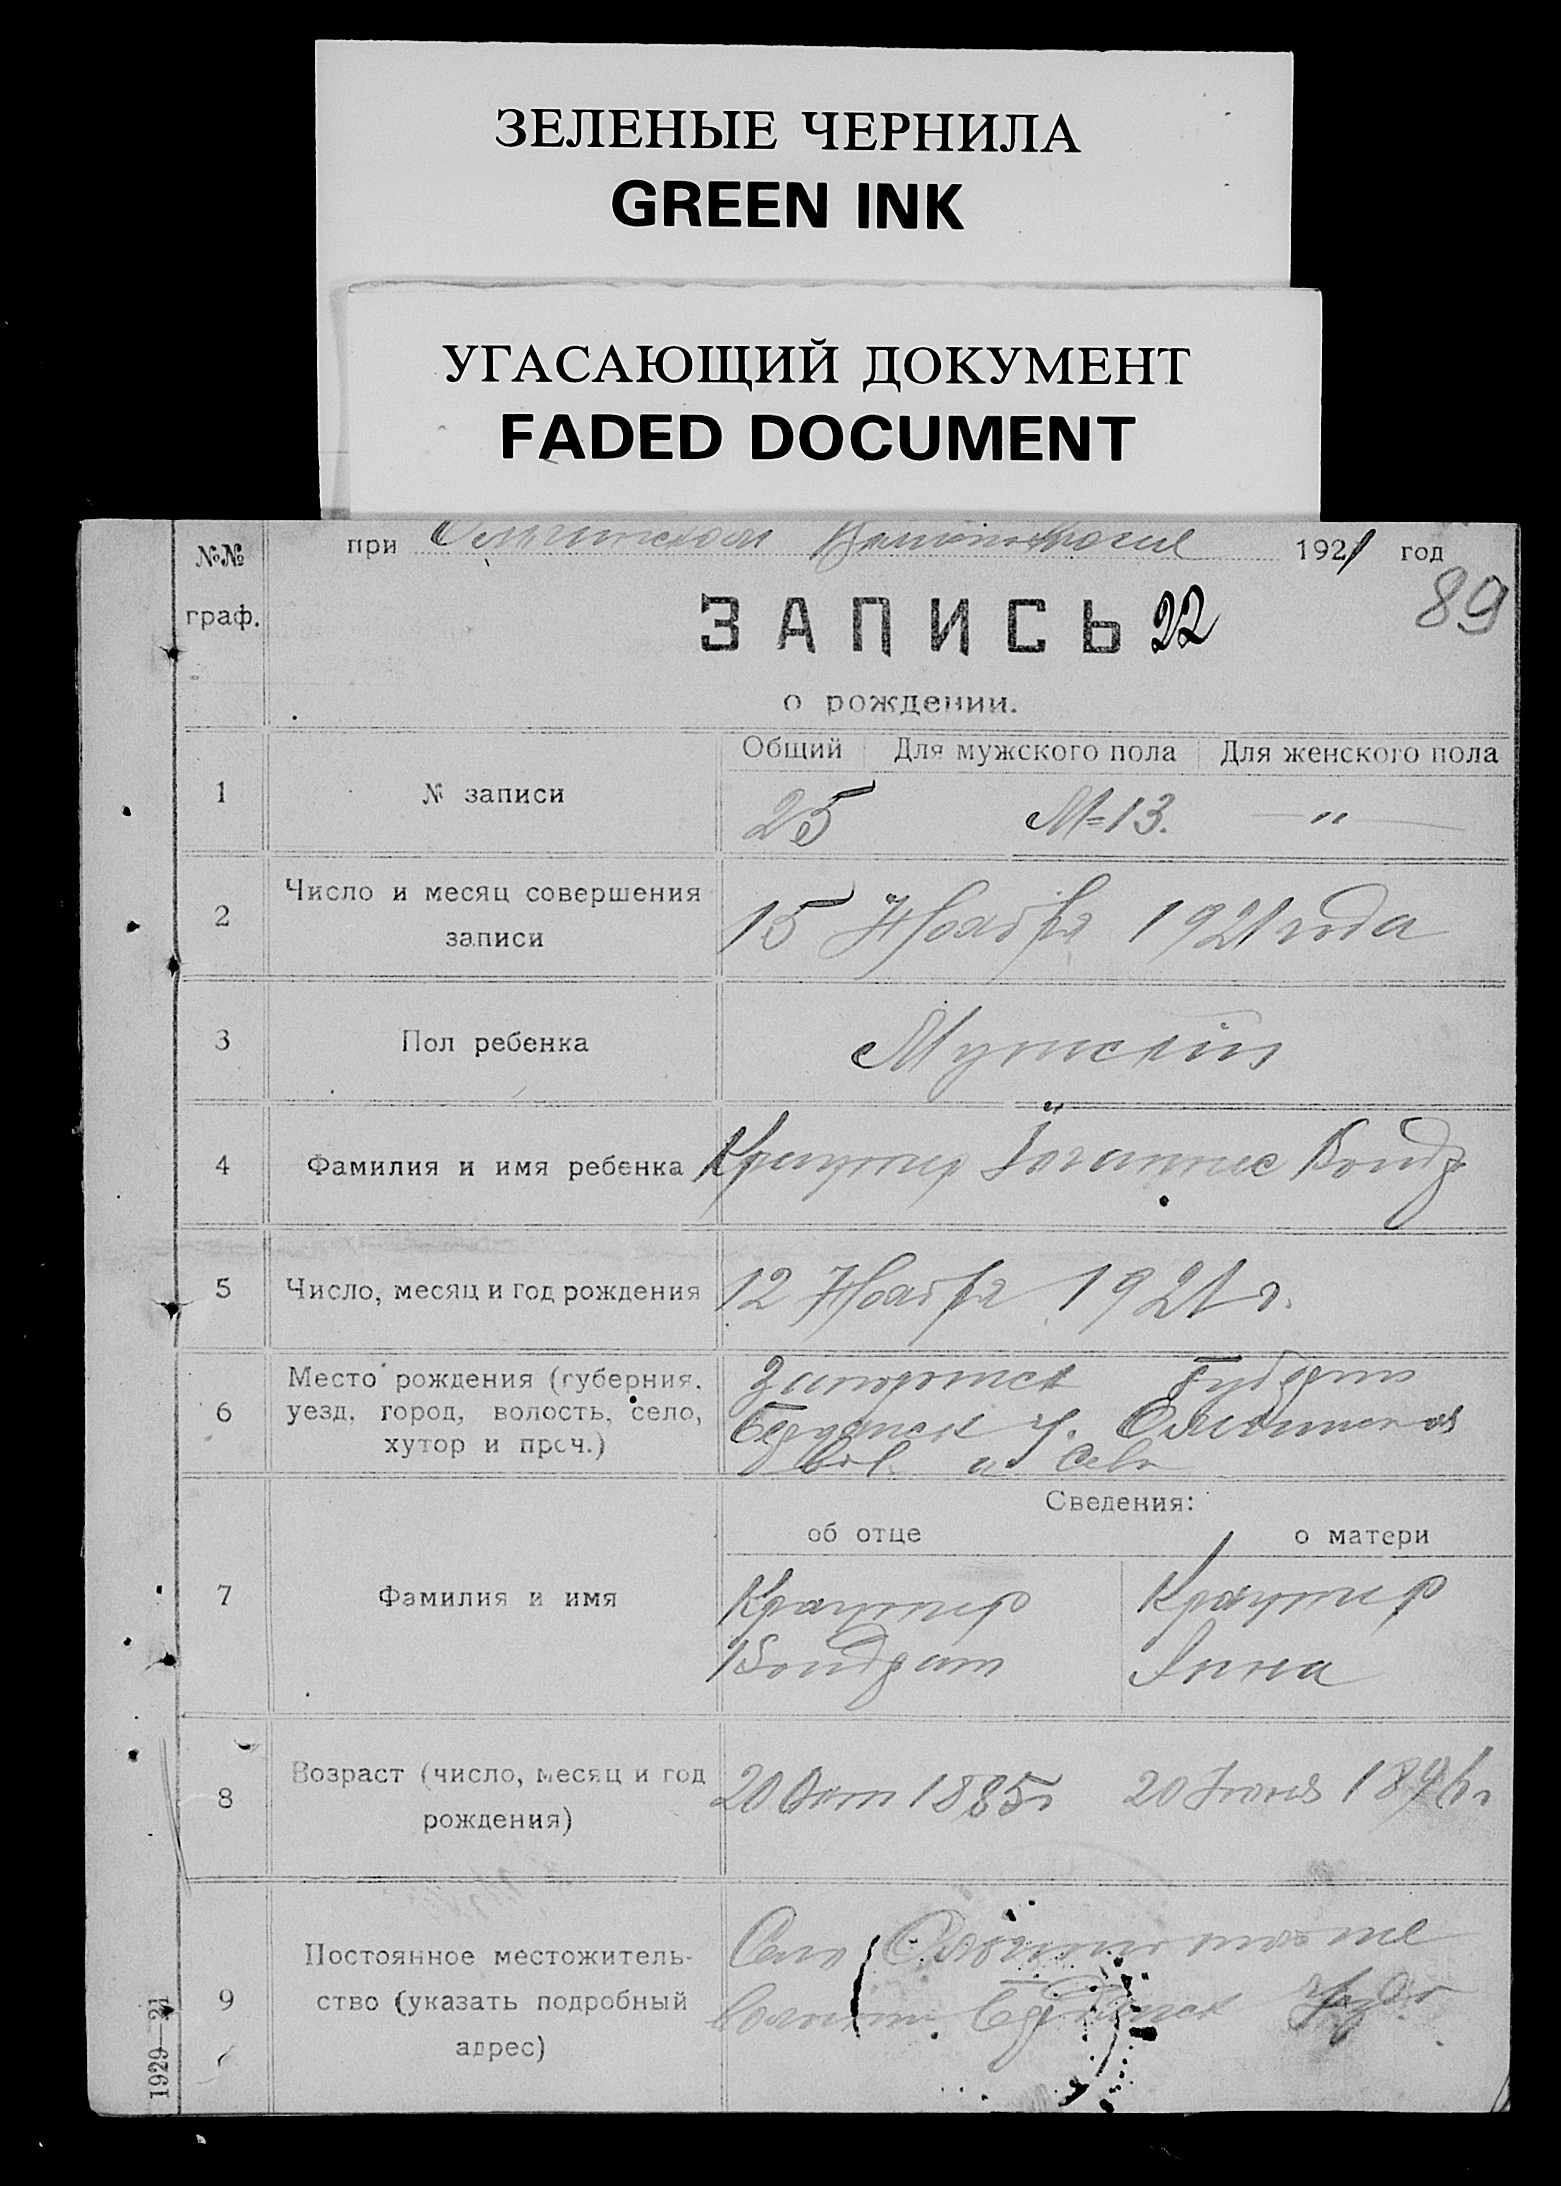 ЗЕЛЕНЫЕ ЧЕРНИЛА
GREEN INK
УГАСАЮЩИЙ ДОКУМЕНТ
FADED DOCUMENT
№№ граф.
при 1921 год
89
ЗАПИСЬ 22
о рождении.
Общий Для мужского пола Для женского пола
1 № записи 25 М-13. — " —
2 Число и месяц совершения записи 15 Ноября 1921 года
3 Пол ребенка Мужский
4 Фамилия и имя ребенка Краутер Іоганнес Кондр
5 Число, месяц и год рождения 12 Ноября 1921 г.
6 Место рождения (губерния,
уезд, город, волость, село,
хутор и проч.)
Запорожск Губерни
Бердянск у.
вол. и села
Сведения:
об отце о матери
7 Фамилия и имя
Краутер Краутер
Кондрат Анна
8 Возраст (число, месяц и год
рождения)
20 Окт 1885 г 20 1896 г
9 Постоянное местожитель-
ство (указать подробный
адрес)
Село
волости Бердянск Уезда
1929—21